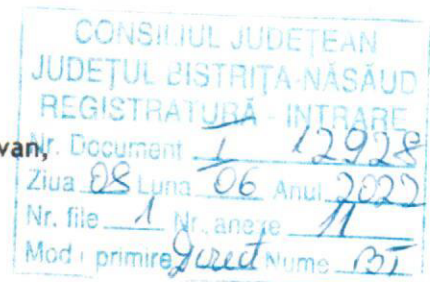 CONSILIUL JUDEȚEAN
JUDEȚUL BISTRIȚA-NĂSĂUD
REGISTRATURĂ - INTRARE
van,
Nr. Document I 12928
Ziua 08 Luna 06 Anul 2022
Nr. file 1 Nr. anexe 11
Mod primire Direct Nume BI